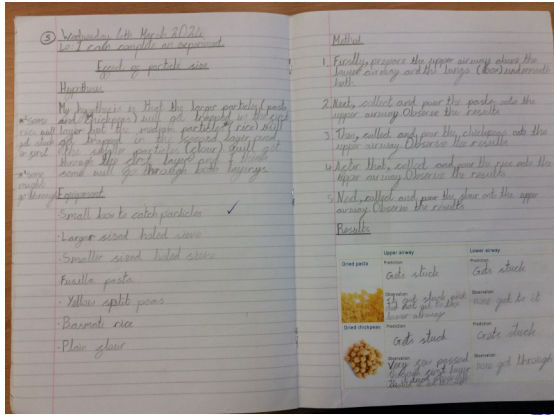 5 Wednesday 6th March 2024
Lo: I can complete an experiment
Effect of particle size
Hypothesis
My hypothesis is that the larger particles (pasta
and chickpeas) will get trapped in the first
layer but the medium particles* (rice) will
get trapped in the second layer and
the smaller particles (flour) will get
through the first layers and I think
some will go through both layers
*some
rice will
get stuck
in first
*some
might
go through
Equipment
· Small box to catch particles
· Larger sized holed sieve
· Smaller sized holed sieve
· Fusilli pasta
· Yellow split peas
· Basmati rice
· Plain flour
Method
1. Firstly, prepare the upper airway above the
lower airway and the lungs (box) underneath
both.
2. Next, collect and pour the pasta into the
upper airway. Observe the results
3. Then, collect and pour the chickpeas into the
upper airway. Observe the results
4. After that, collect and pour the rice into the
upper airway. Observe the results
5. Next, collect and pour the flour into the upper
airway. Observe the results
Results
Upper airway Lower airway
Dried pasta
Prediction
Gets stuck
Prediction
Gets stuck
Observation
It got stuck and
did not get to the
lower airway
Observation
none got to it
Dried chickpeas
Prediction
Gets stuck
Prediction
Gets stuck
Observation
Very few passed
through first layer
Observation
none got through